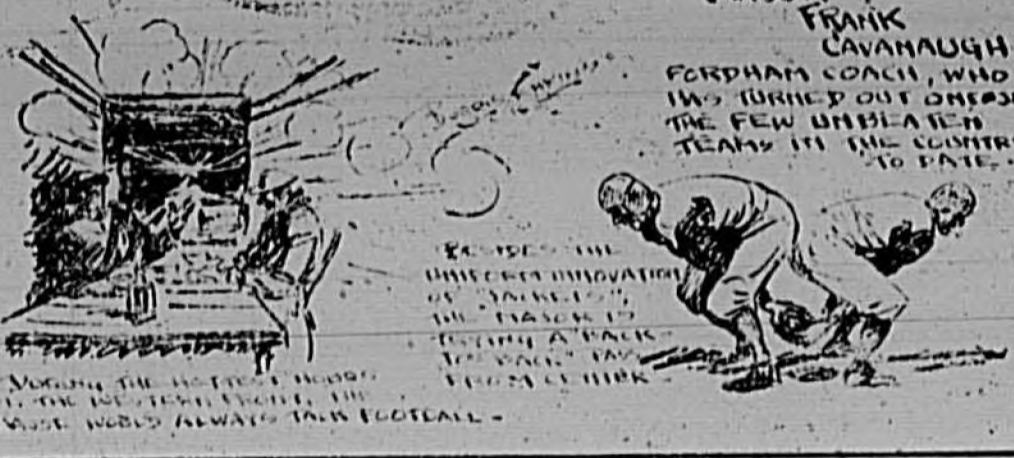 FRANK
CAVANAUGH
FORDHAM COACH, WHO
HAS TURNED OUT ONE OF
THE FEW UNBEATEN
TEAMS IN THE COUNTRY
TO DATE.
BESIDES THE
UNIFORM INNOVATION
OF "JACKETS",
THE "MAJOR" IS
TRYING A "BACK
TO BACK" PASS
FROM CENTER -
DURING THE HOTTEST HOURS
THE WESTERN FRONT, THE
WOULD ALWAYS TALK FOOTBALL -